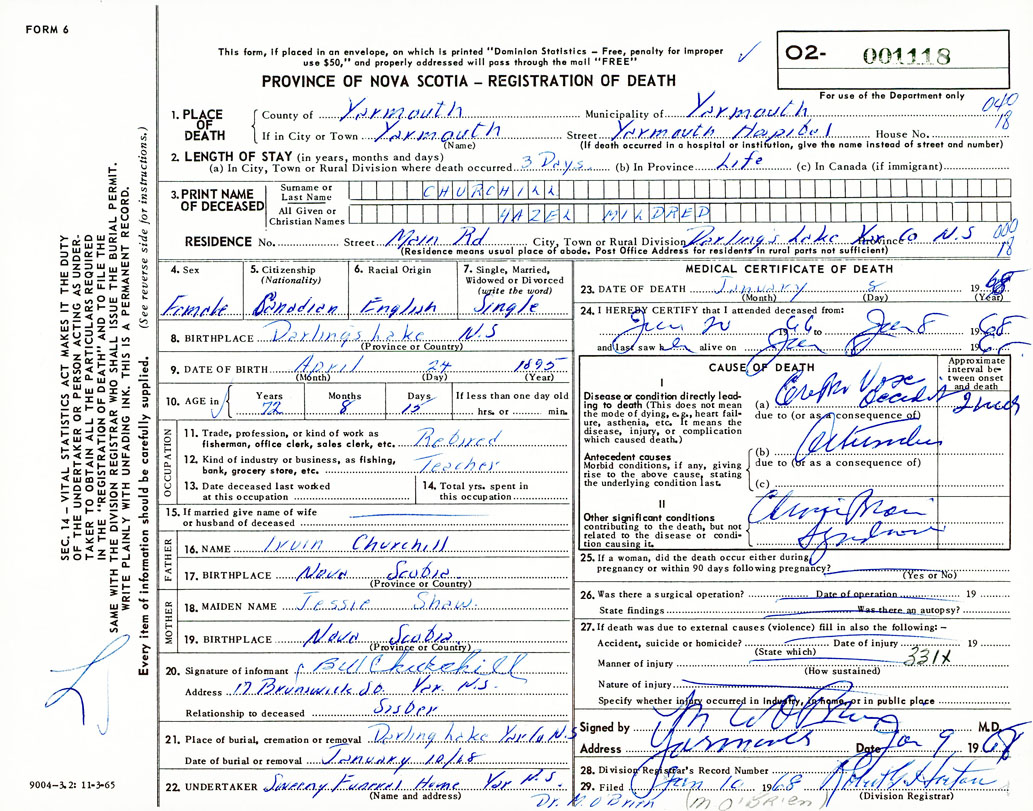 FORM 6
This form, if placed in an envelope, on which is printed "Dominion Statistics – Free, penalty for improper
use $50," and properly addressed will pass through the mail "FREE"
PROVINCE OF NOVA SCOTIA – REGISTRATION OF DEATH
O2- 001118
For use of the Department only
040
18
1. PLACE OF DEATH
County of Yarmouth Municipality of Yarmouth
If in City or Town Yarmouth Street Yarmouth Hospital House No.
(Name) (If death occurred in a hospital or institution, give the name instead of street and number)
2. LENGTH OF STAY (in years, months and days)
(a) In City, Town or Rural Division where death occurred 3 Days (b) In Province Life (c) In Canada (if immigrant)
3. PRINT NAME OF DECEASED
Surname or Last Name CHURCHILL
All Given or Christian Names HAZEL MILDRED
RESIDENCE No. Street Main Rd City, Town or Rural Division Darling's Lake Yar Co N.S Province
(Residence means usual place of abode. Post Office Address for residents in rural parts not sufficient)
000
18
4. Sex Female
5. Citizenship (Nationality) Canadian
6. Racial Origin English
7. Single, Married, Widowed or Divorced (write the word) Single
8. BIRTHPLACE Darling's Lake N.S
(Province or Country)
9. DATE OF BIRTH April 24 1895
(Month) (Day) (Year)
10. AGE in Years 72 Months 8 Days 15 If less than one day old hrs. or min.
OCCUPATION
11. Trade, profession, or kind of work as fisherman, office clerk, sales clerk, etc. Retired
12. Kind of industry or business, as fishing, bank, grocery store, etc. Teacher
13. Date deceased last worked at this occupation
14. Total yrs. spent in this occupation
15. If married give name of wife or husband of deceased
FATHER
16. NAME Irvin Churchill
17. BIRTHPLACE Nova Scotia
(Province or Country)
MOTHER
18. MAIDEN NAME Jessie Shaw
19. BIRTHPLACE Nova Scotia
(Province or Country)
20. Signature of informant Churchill
Address 17 Brunswick St. Yar. N.S.
Relationship to deceased Sister
21. Place of burial, cremation or removal Darling Lake Yar Co N.S
Date of burial or removal January 10/68
22. UNDERTAKER Sweeny Funeral Home Yar N.S.
(Name and address)
MEDICAL CERTIFICATE OF DEATH
23. DATE OF DEATH January 8 1968
(Month) (Day) (Year)
24. I HEREBY CERTIFY that I attended deceased from:
Jan 20 1966 to Jan 8 1968
and last saw her alive on Jan 8 1968
CAUSE OF DEATH
Approximate interval between onset and death
I
Disease or condition directly leading to death (This does not mean the mode of dying, e.g., heart failure, asthenia, etc. It means the disease, injury, or complication which caused death.)
(a) Cerebro Vasc Accident
due to (or as a consequence of)
Antecedent causes
Morbid conditions, if any, giving rise to the above cause, stating the underlying condition last.
(b)
due to (or as a consequence of)
(c)
II
Other significant conditions contributing to the death, but not related to the disease or condition causing it.
Syndrome
25. If a woman, did the death occur either during pregnancy or within 90 days following pregnancy?
(Yes or No)
26. Was there a surgical operation? Date of operation 19
State findings Was there an autopsy?
27. If death was due to external causes (violence) fill in also the following: –
Accident, suicide or homicide? Date of injury 19
(State which)
Manner of injury 331X
(How sustained)
Nature of injury
Specify whether injury occurred in industry, in home, or in public place
Signed by M W O'Brien M.D.
Address Yarmouth Date Jan 9 1968
28. Division Registrar's Record Number
29. Filed Jan 1968
(Division Registrar)
Dr. M. O'Brien (M O'BRIEN)
SEC. 14 – VITAL STATISTICS ACT MAKES IT THE DUTY
OF THE UNDERTAKER OR PERSON ACTING AS UNDER-
TAKER TO OBTAIN ALL THE PARTICULARS REQUIRED
IN THE "REGISTRATION OF DEATH" AND TO FILE THE
SAME WITH THE DIVISION REGISTRAR WHO SHALL ISSUE THE BURIAL PERMIT.
WRITE PLAINLY WITH UNFADING INK. THIS IS A PERMANENT RECORD.
Every item of information should be carefully supplied. (See reverse side for instructions.)
9004–3.2: 11-3-65